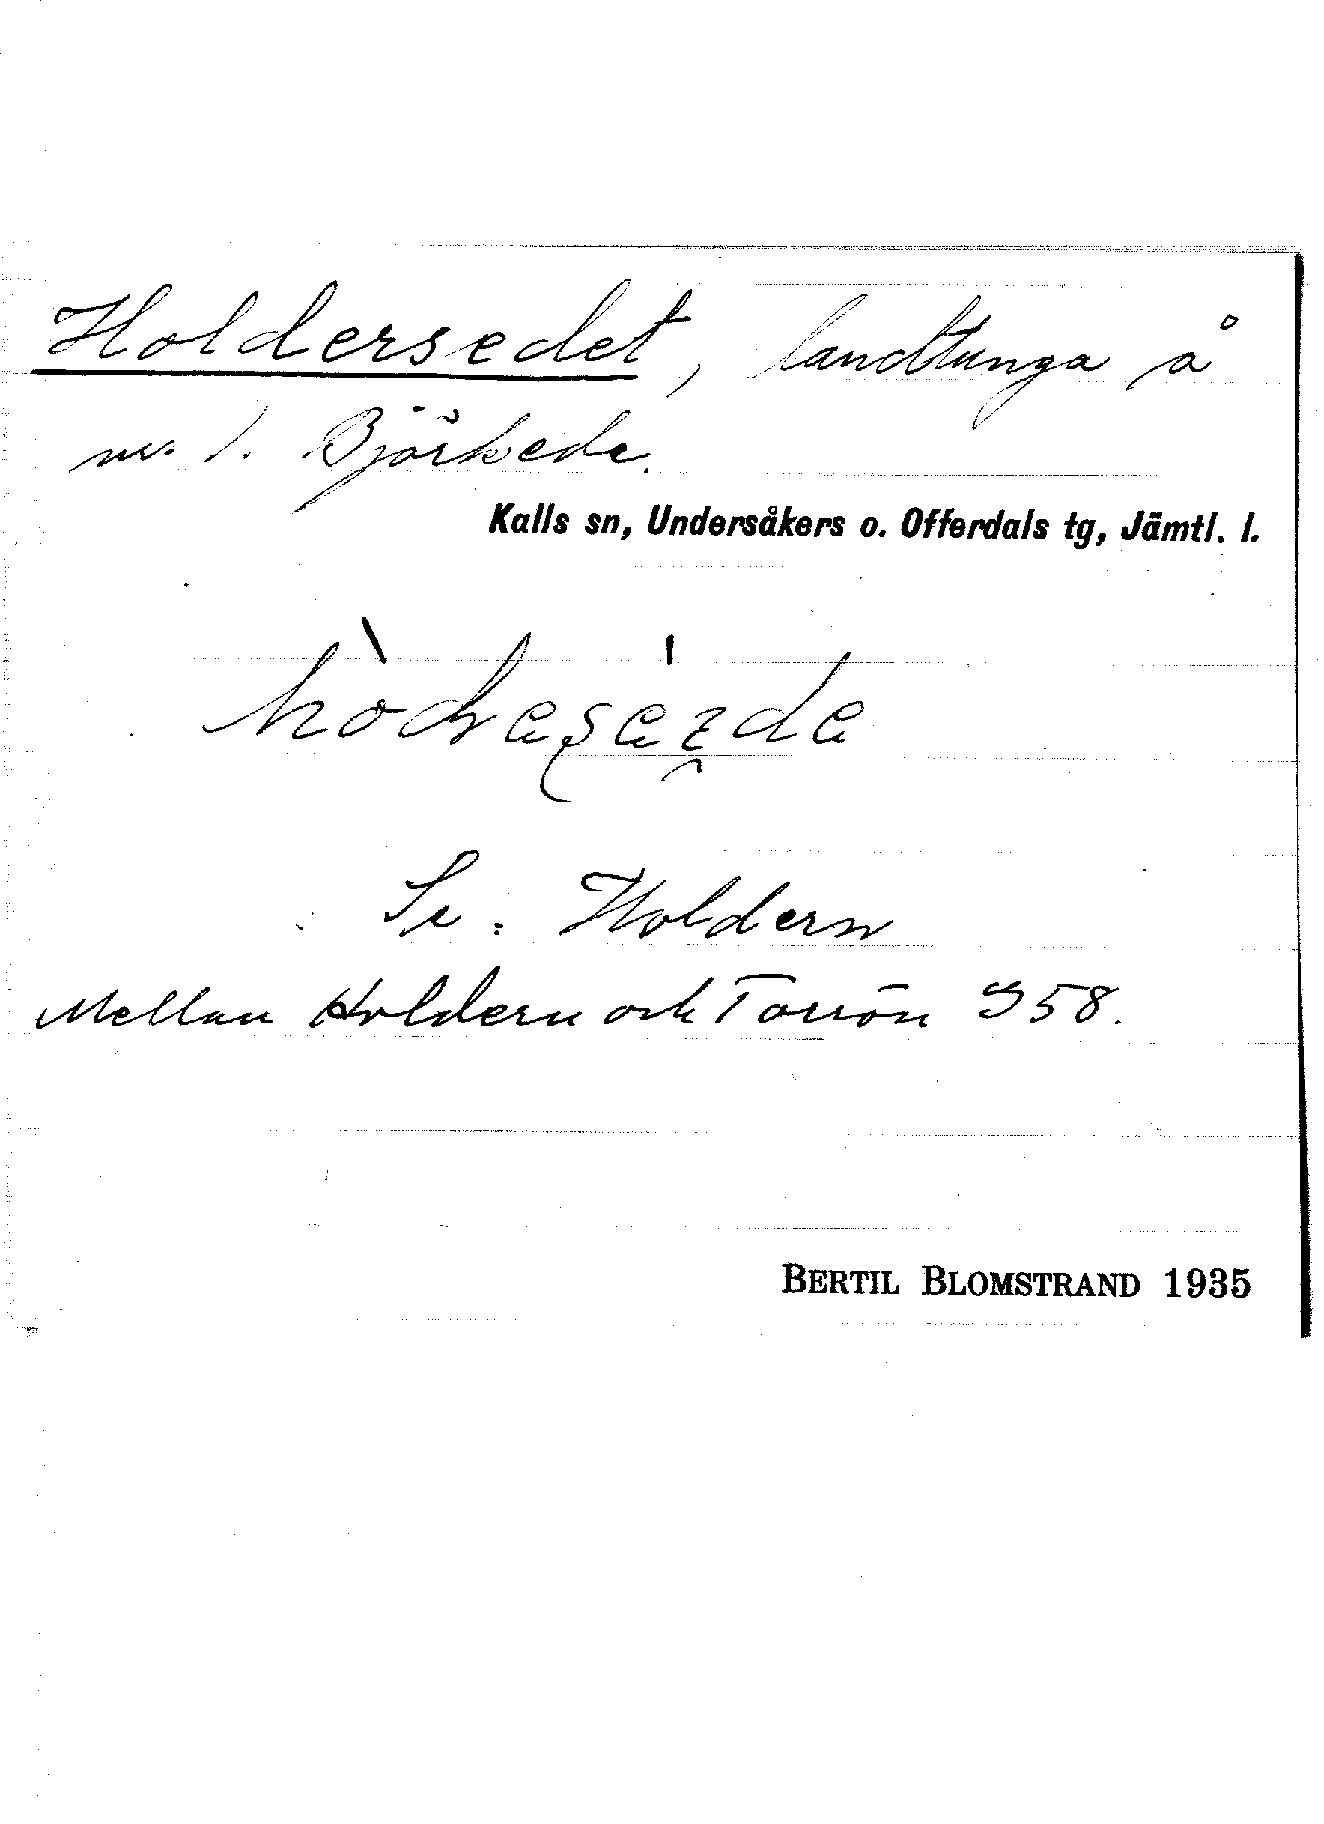 Holdersedet, landtunga å
nr. 1. Björkede.
Kalls sn, Undersåkers o. Offerdals tg, Jämtl. l.
Se: Holdern
Mellan Holdern och Torrön S58.
BERTIL BLOMSTRAND 1935